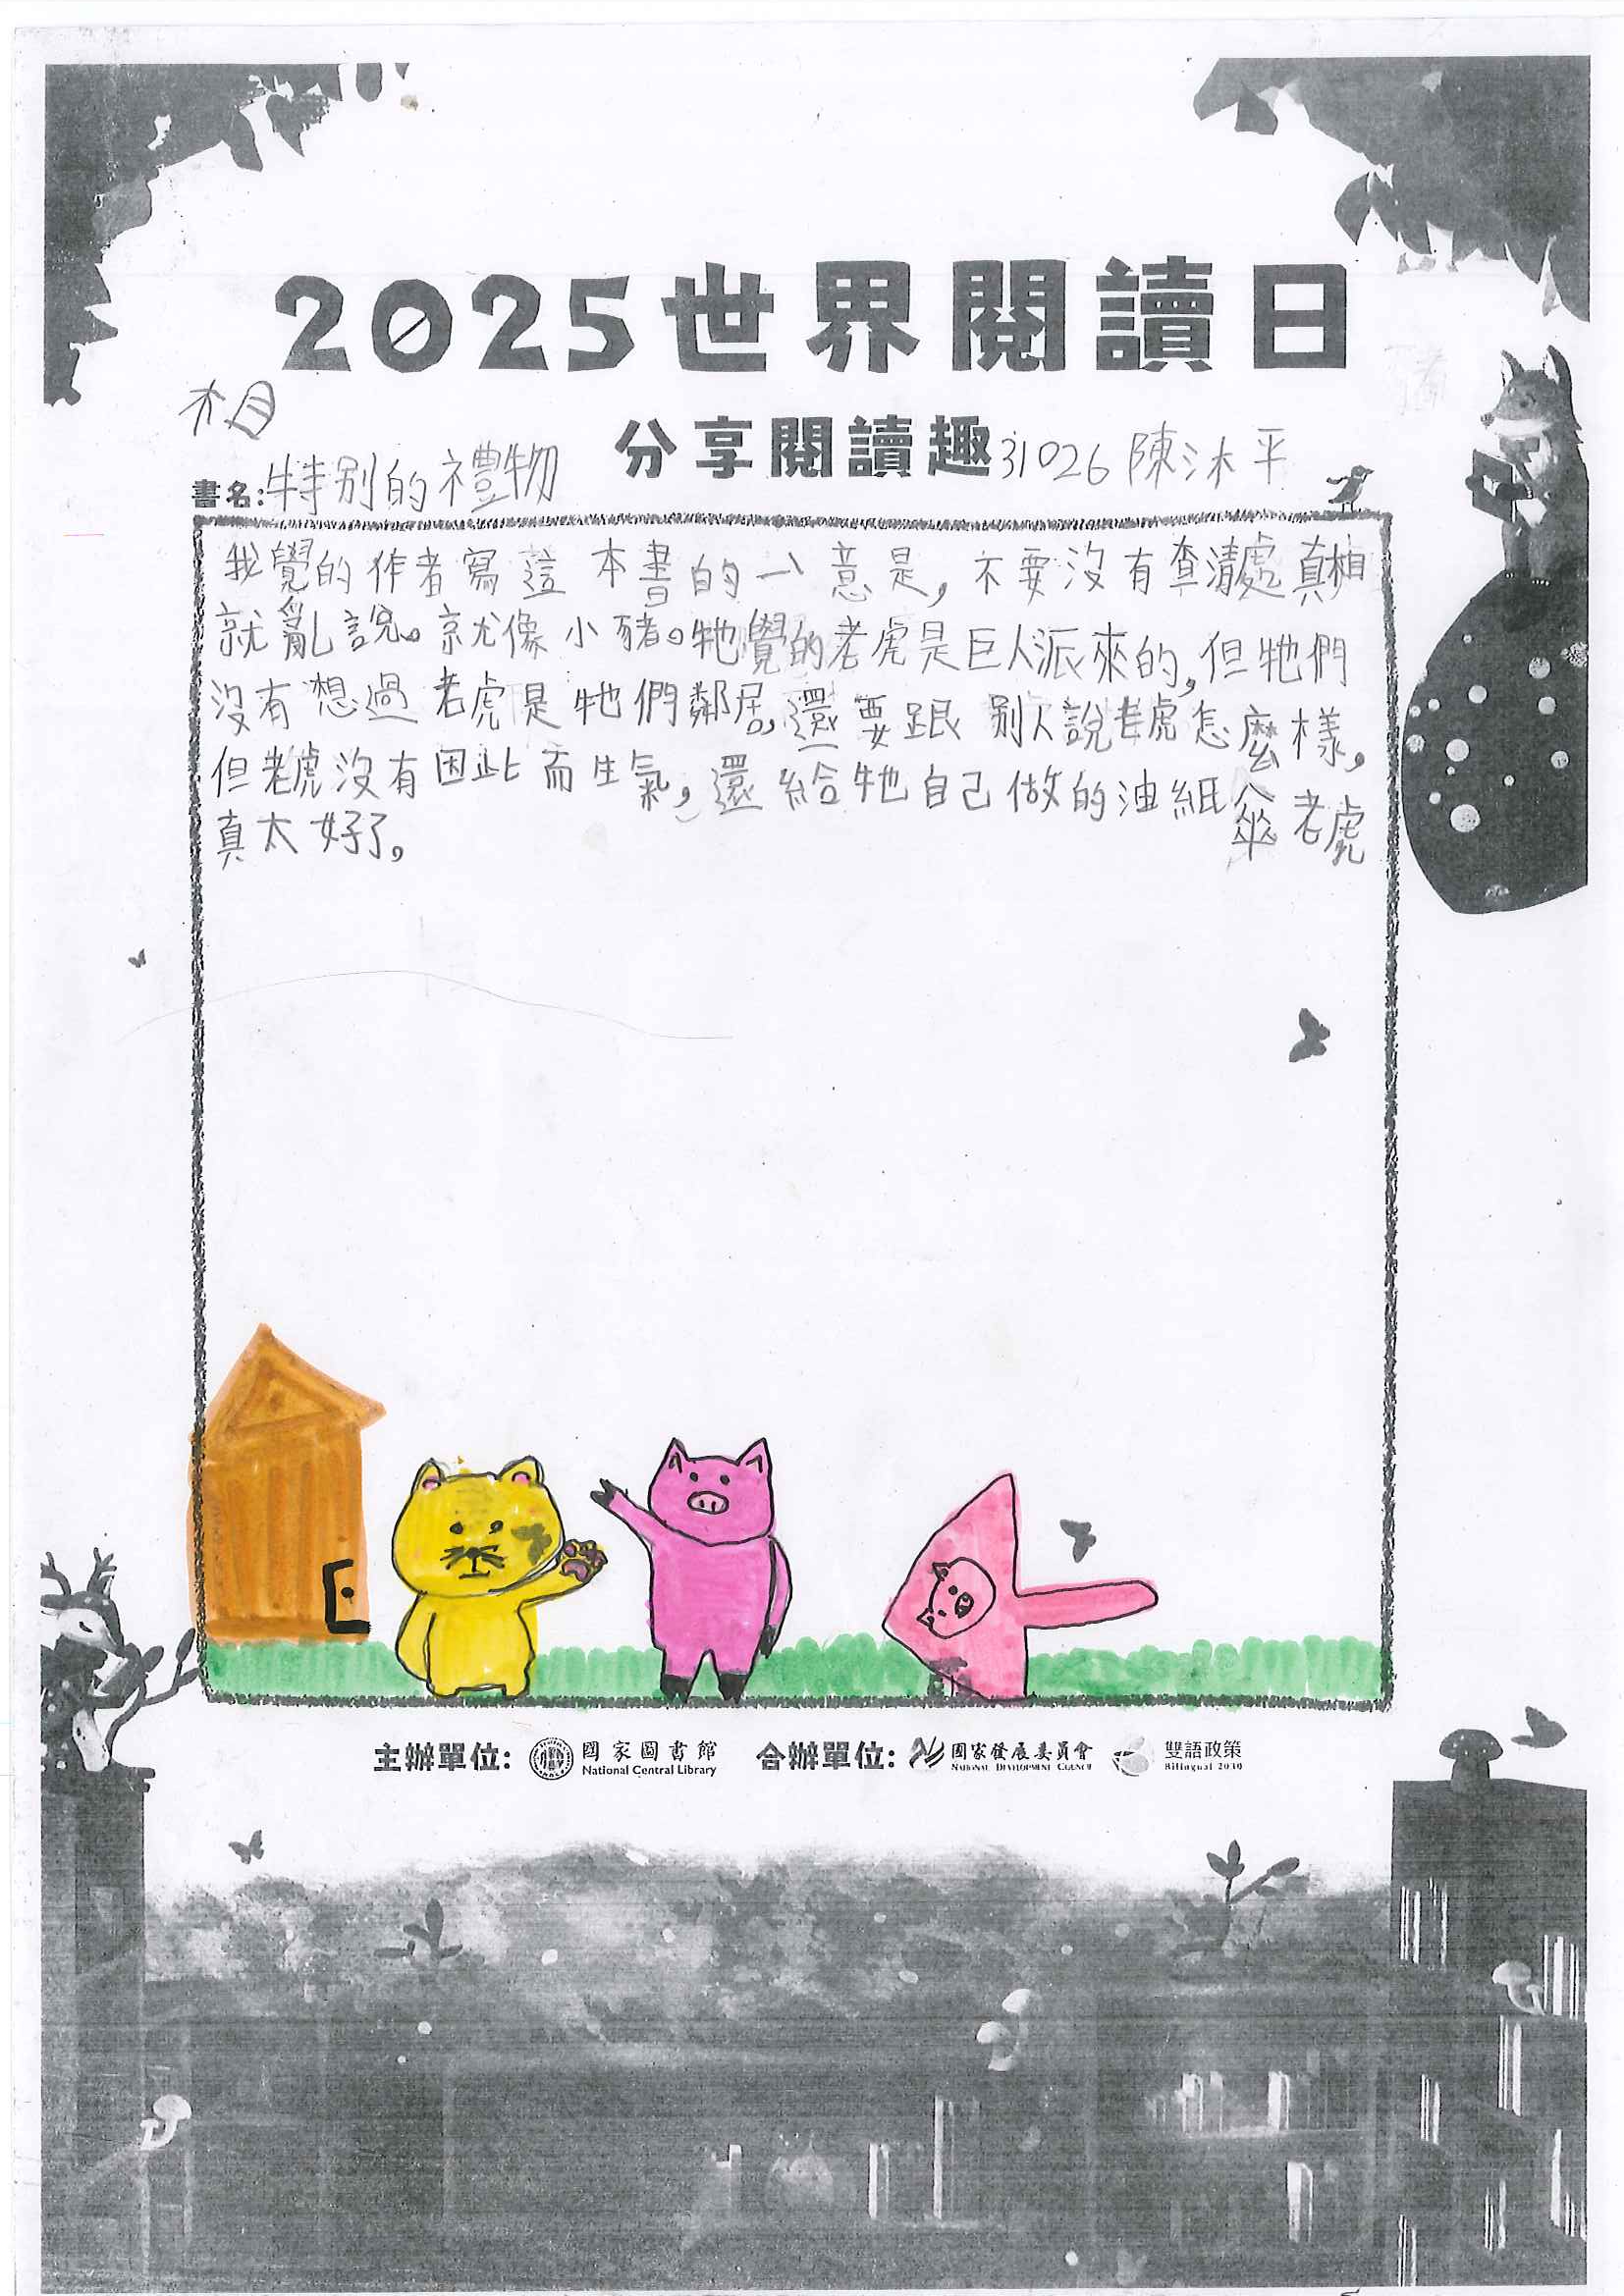 2025世界閱讀日
相
分享閱讀趣 31026 陳沐平
書名:特別的禮物
我覺的作者寫這本書的一意是,不要沒有查清處真相
就亂說。就像小豬。牠覺的老虎是巨人派來的,但牠們
沒有想過老虎是牠們鄰居,還要跟別人說老虎怎麼樣,
但老虎沒有因此而生氣,還給牠自己做的油紙傘老虎
真太好了,
主辦單位: 國家圖書館 National Central Library 合辦單位: 國家發展委員會 NATIONAL DEVELOPMENT COUNCIL 雙語政策 Bilingual 2030